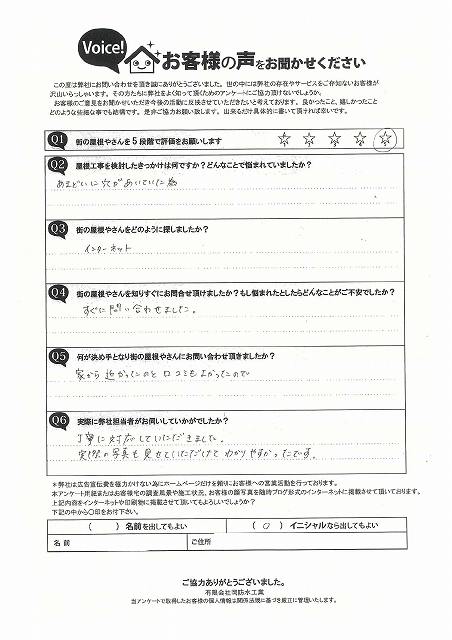 Voice!
お客様の声をお聞かせください
この度は弊社にお問い合わせを頂き誠にありがとうございます。世の中には弊社の存在やサービスをご存知ないお客様が
沢山いらっしゃいます。その方たちに弊社をよく知って頂くためのアンケートにご協力頂けないでしょうか。
お客様のご意見をお聞かせいただき今後の活動に反映させていただきたいと考えております。良かったこと、嬉しかったこと
どのような些細な事でも結構です。是非ご協力お願い致します。出来るだけ具体的に書いて頂ければ幸いです。
Q1 街の屋根やさんを5段階で評価をお願いします ☆ ☆ ☆ ☆ ☆
Q2 屋根工事を検討したきっかけは何ですか?どんなことで悩まれていましたか?
あまどいに穴があいていた為
Q3 街の屋根やさんをどのように探しましたか?
インターネット
Q4 街の屋根やさんを知りすぐにお問合せ頂けましたか?もし悩まれたとしたらどんなことがご不安でしたか?
すぐに問い合わせました。
Q5 何が決め手となり街の屋根やさんにお問い合わせ頂きましたか?
家から近かったのと口コミもよかったので
Q6 実際に弊社担当者がお伺いしていかがでしたか?
丁寧に対応していただきました。
実際の写真も見せていただけてわかりやすかったです。
*弊社は広告宣伝費を極力かけない為にホームページだけを頼りにお客様への営業活動を行っております。
本アンケート用紙またはお客様宅の調査風景や施工状況、お客様の顔写真を随時ブログ形式のインターネットに掲載させて頂いております。
上記内容をインターネットや印刷物に掲載させて頂いてもよろしいでしょうか?
下記の中から〇印をお付下さい。
( ) 名前を出してもよい ( 〇 ) イニシャルなら出してもよい
名前 ご住所
ご協力ありがとうございました。
有限会社岡防水工業
当アンケートで取得したお客様の個人情報は関係法規に基づき厳正に管理いたします。